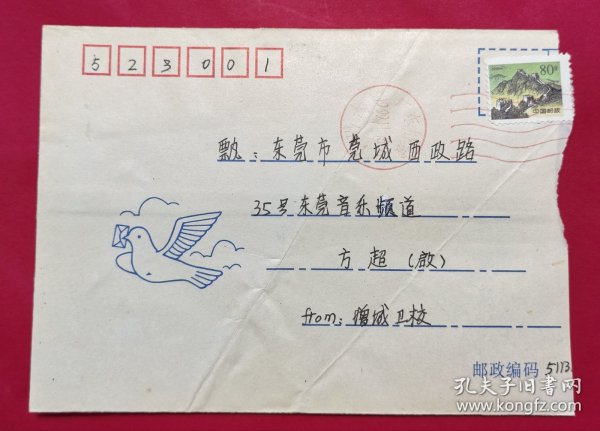 523001
80分
中国邮政
飘：东莞市莞城西政路
35号东莞音乐频道
方超（啟）
from：增城卫校
邮政编码 5113
孔夫子旧书网
www.kongfz.com